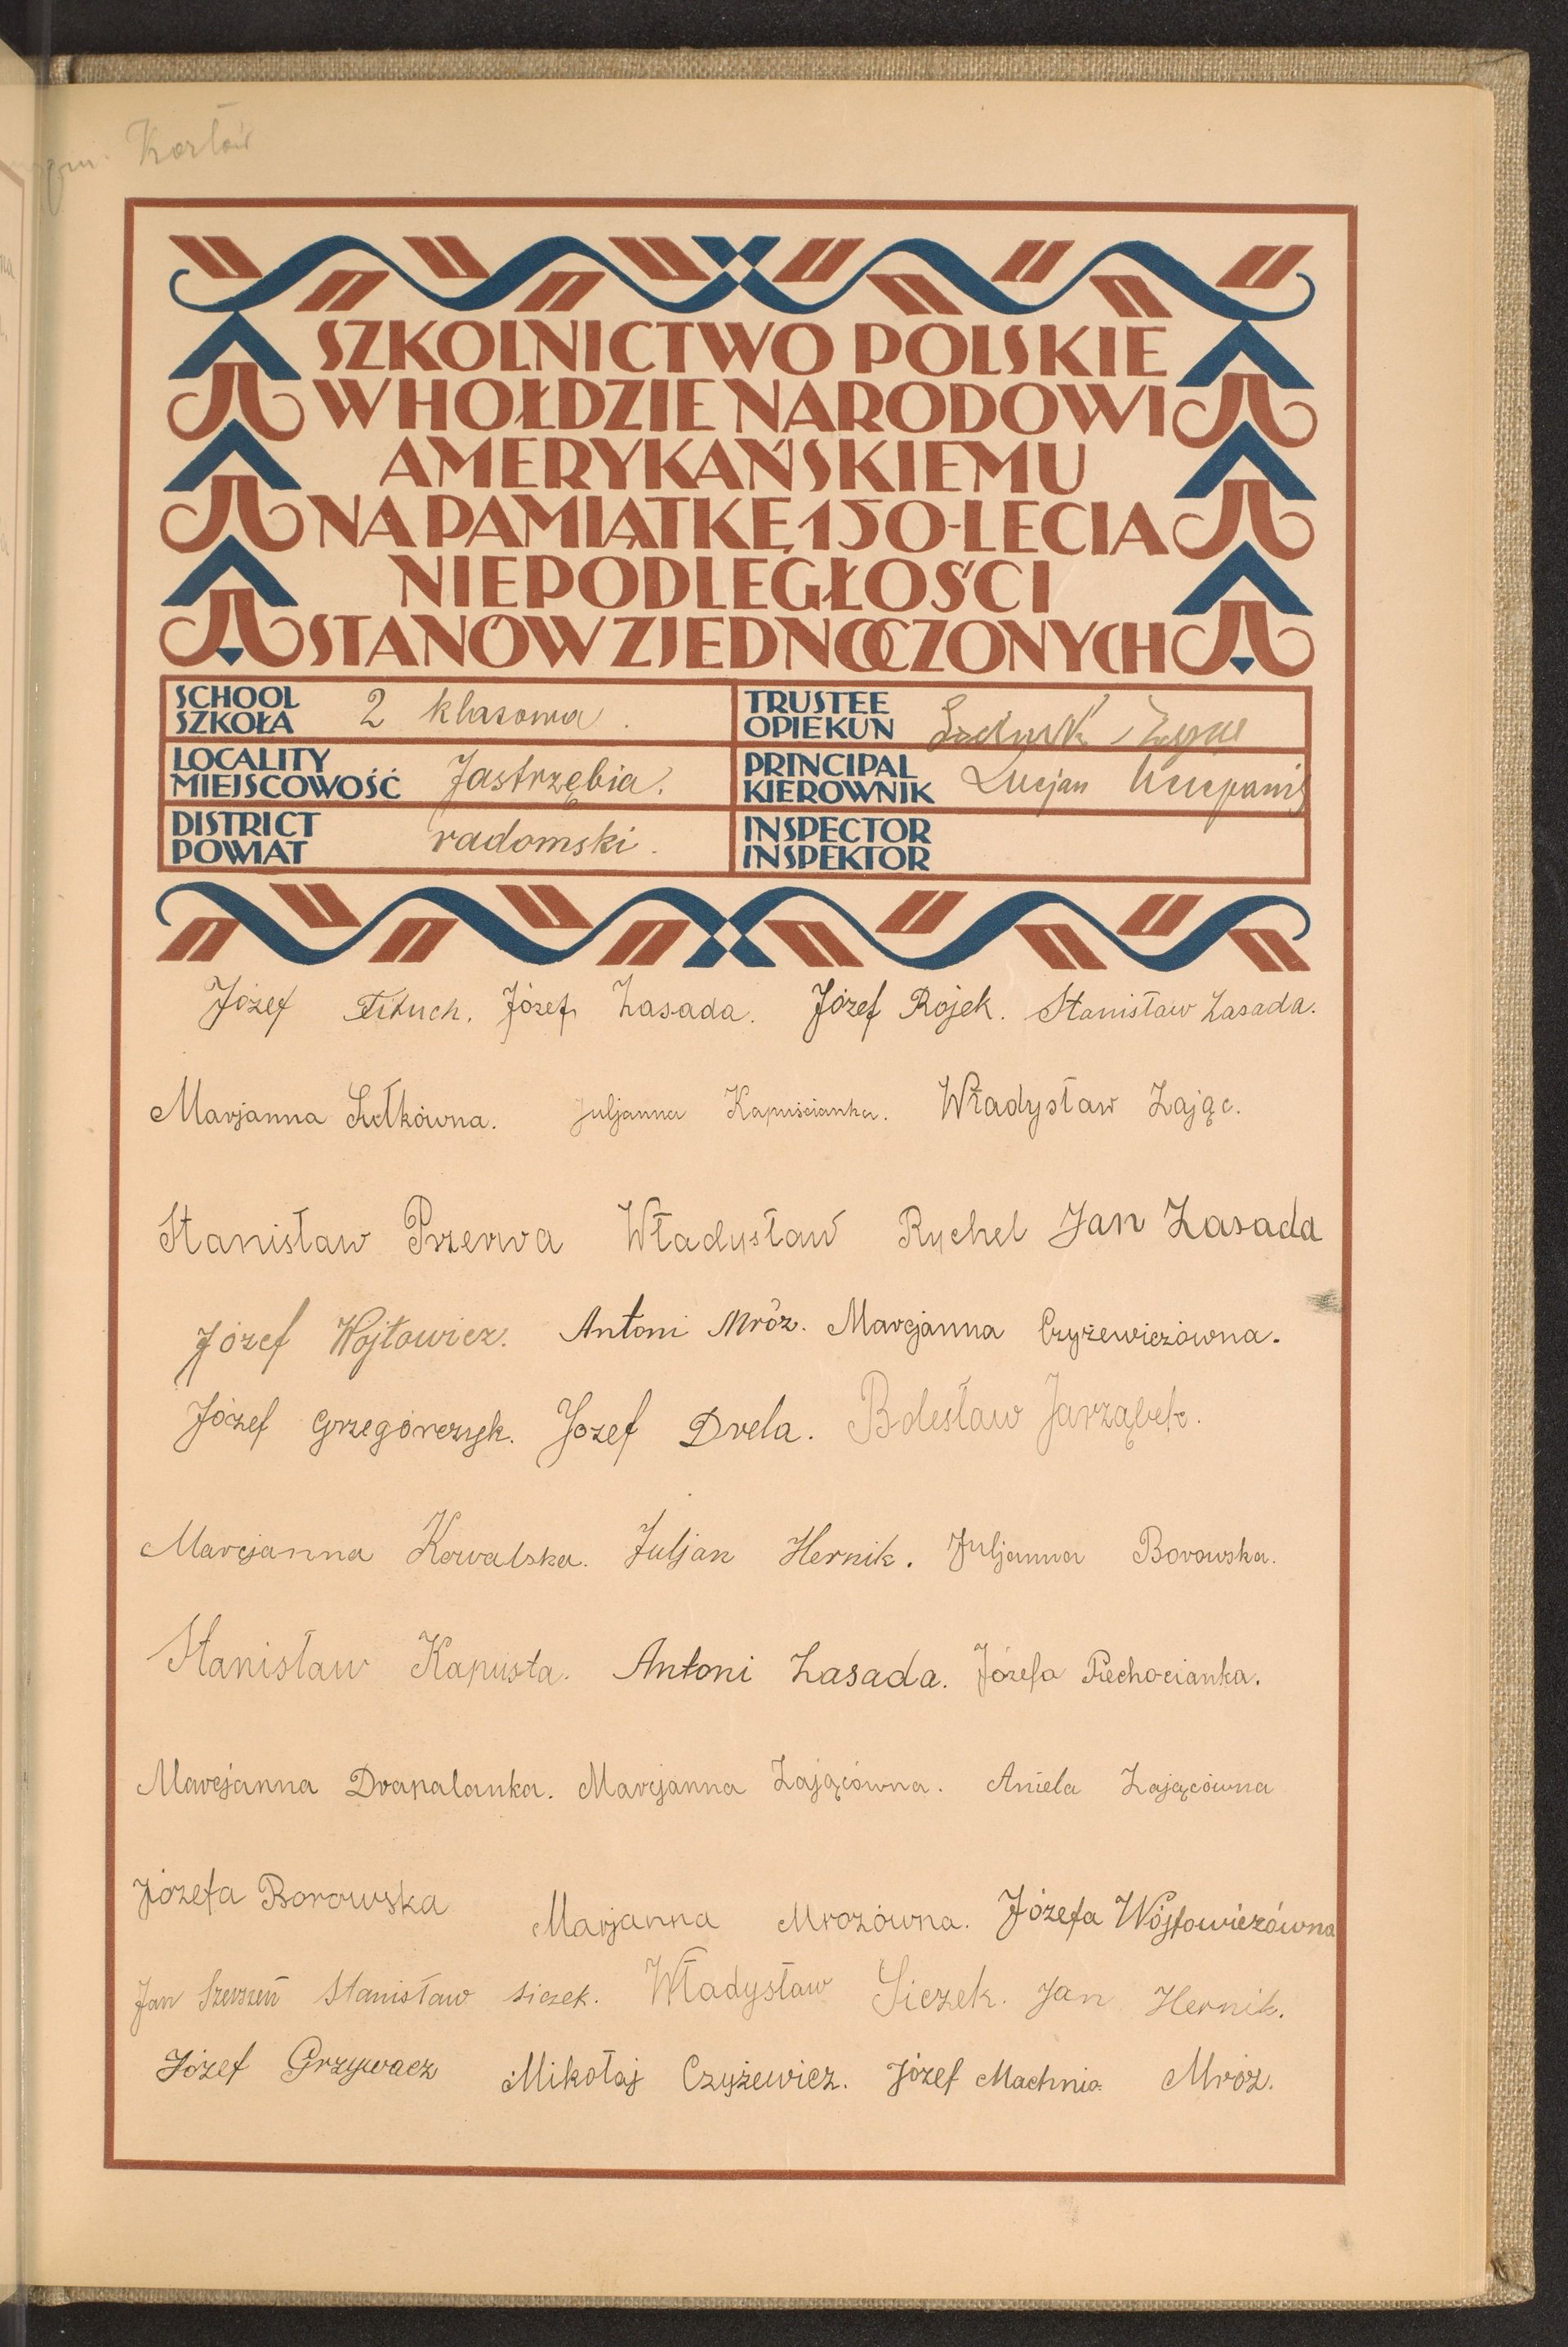 SZKOLNICTWO POLSKIE
W HOŁDZIE NARODOWI
AMERYKAŃSKIEMU
NA PAMIĄTKĘ 150-LECIA
NIEPODLEGŁOŚCI
STANÓW ZJEDNOCZONYCH
SCHOOL
SZKOŁA 2 klasowa.
TRUSTEE
OPIEKUN
LOCALITY
MIEJSCOWOŚĆ Jastrzębia.
PRINCIPAL
KIEROWNIK Lucjan
DISTRICT
POWIAT radomski.
INSPECTOR
INSPEKTOR
Józef Fituch. Józef Zasada. Józef Rojek. Stanisław Zasada.
Marjanna Juljanna Kapuścianka. Władysław Zając.
Stanisław Przerwa Władysław Rychel Jan Zasada
Józef Wojtowicz. Antoni Mróz. Marcjanna Czyżewiczówna.
Józef Grzegorczyk. Józef Drela. Bolesław Jarząbek.
Marcjanna Kowalska. Juljan Hernik. Juljanna Borowska.
Stanisław Kapusta. Antoni Zasada. Józefa Piechocianka.
Marcjanna Drapalanka. Marcjanna Zającówna. Aniela Zającówna
Józefa Borowska Marjanna Mrozówna. Józefa Wójtowiczówna
Jan Szerszeń Stanisław Siczek. Władysław Siczek. Jan Hernik.
Józef Grzywacz Mikołaj Czyżewicz. Józef Machnio Mróz.